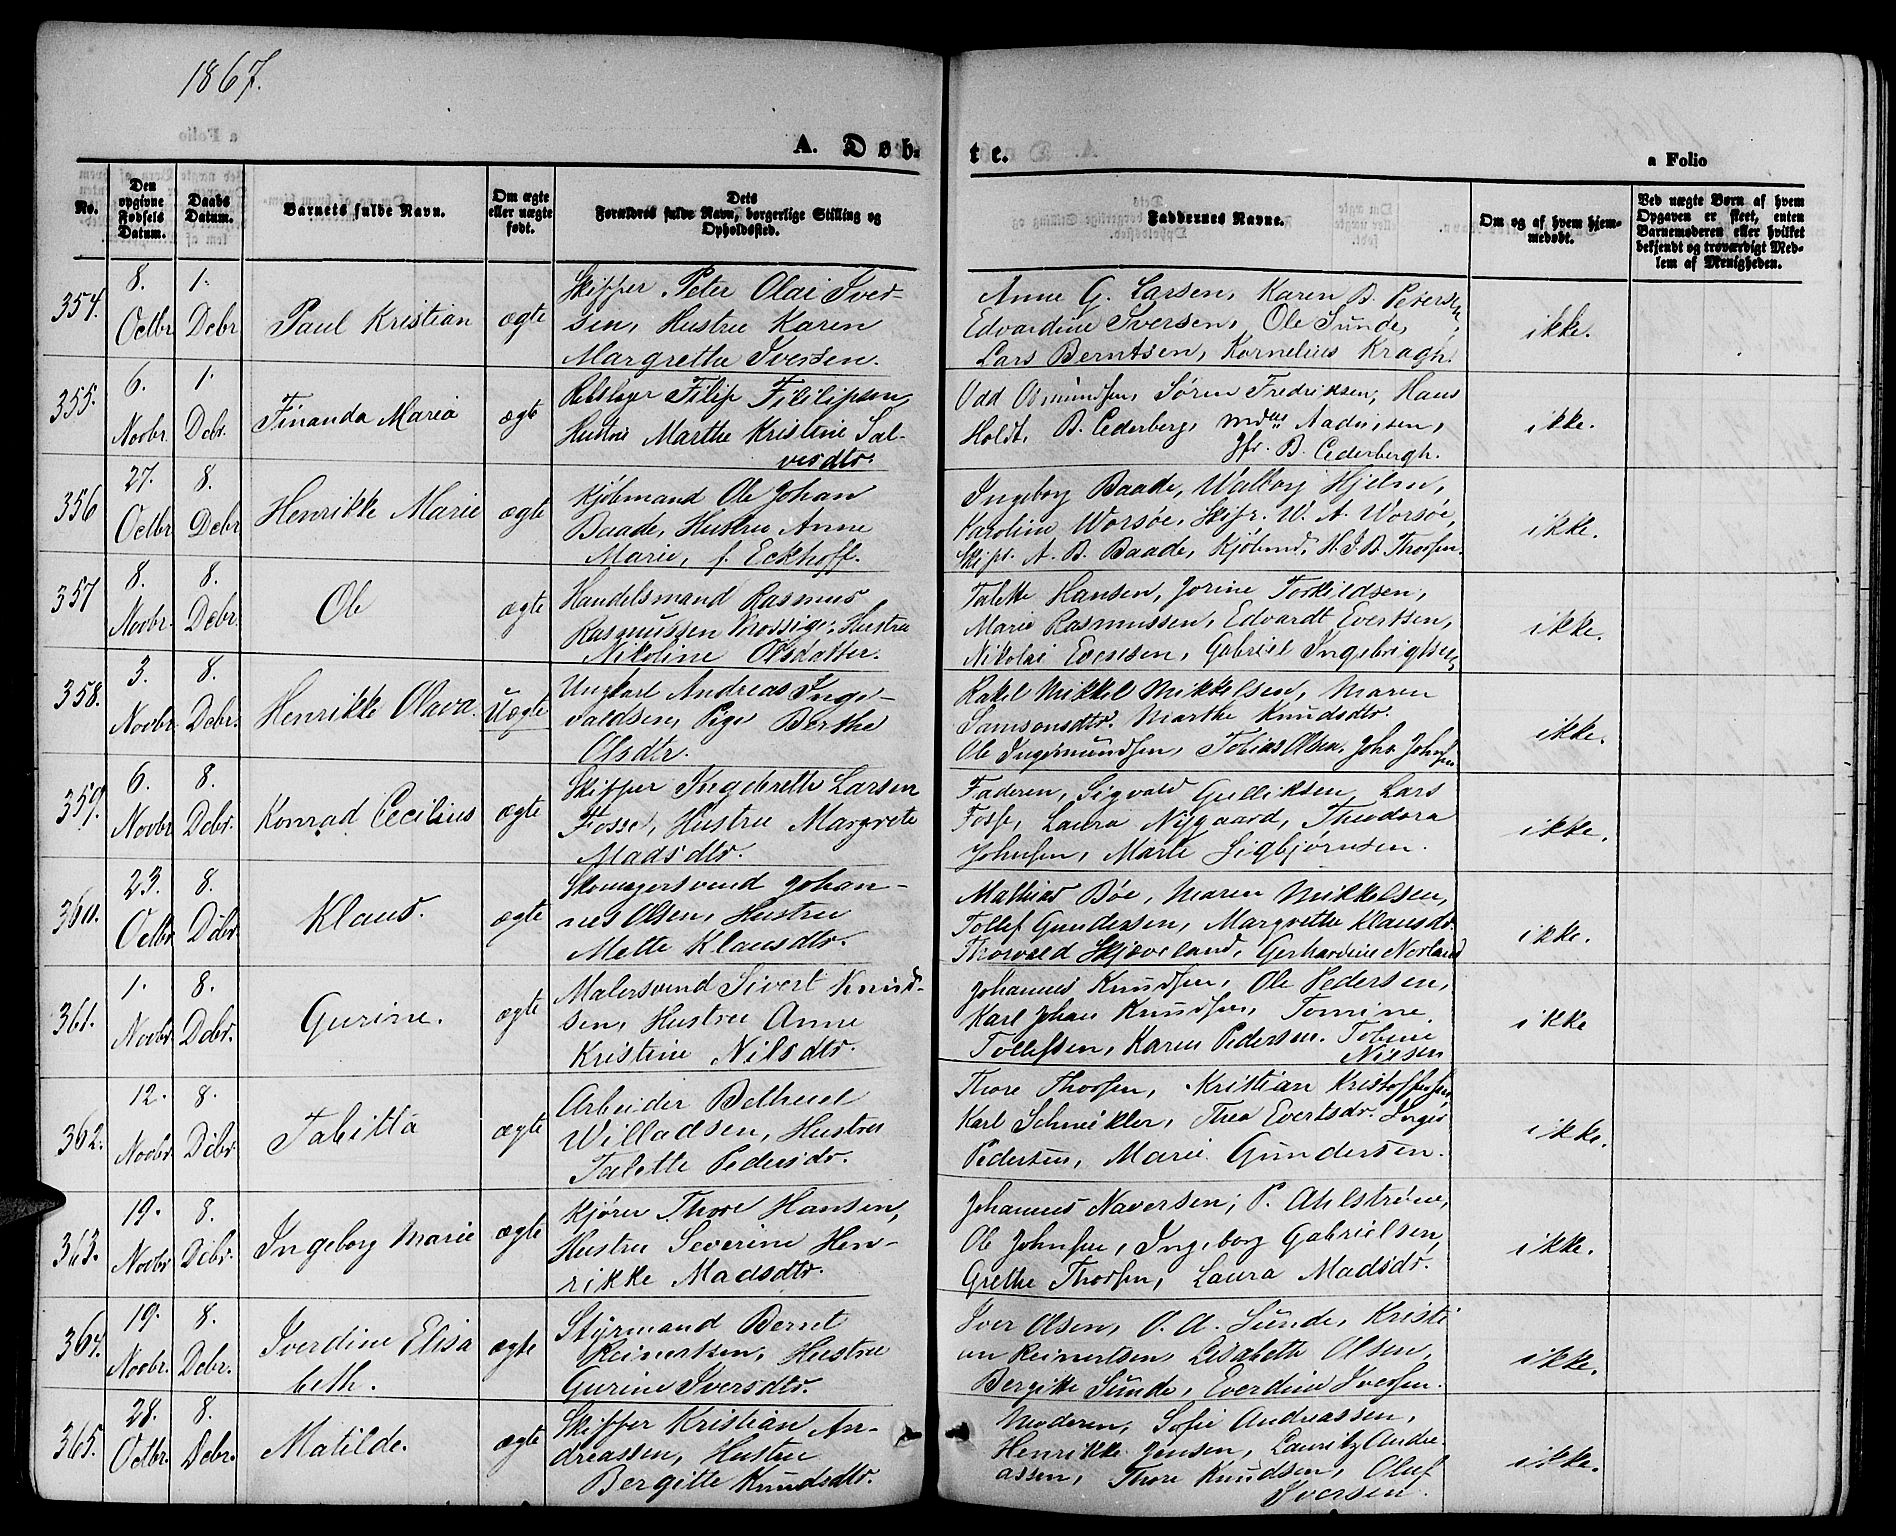 1867.
A. Døb-
te.
a Folio
No.
Den opgivne Fødsels Datum.
Daabs Datum.
Barnets fulde Navn.
Om ægte eller uægte født.
Dets Forældres fulde Navn, borgerlige Stilling og Opholdssted.
Faddernes Navne.
Om og af hvem hjemmedøbt.
Ved uægte Børn af hvem Opgaven er skeet, enten Barnemoderen eller hvilket bekjendt og troværdigt Medlem af Menigheden.
354.
8. Octbr
1. Debr
Paul Kristian
ægte
Skipper Peter Olai Iver-
sen, Hustru Karen
Margrethe Iversen.
Anne G. Larsen, Karen B. Petersen,
Edvardine Iversen, Ole Sunde,
Lars Berntsen, Kornelius Kragh.
ikke.
355.
6. Novbr
1. Debr.
Finanda Maria
ægte
Rebslager Filip Fililipsen
Hustru Marthe Kristine Sal-
vesdtr.
Odd Osmundsen, Søren Fredriksen, Hans
Holdt, B. Cederberg, Mdm
Jfr. B. Cederbergh.
ikke.
356
27. Octbr
8. Debr
Henrikke Marie
ægte
Kjøbmand Ole Johan
Baade, Hustru Anne
Marie, f. Eckhoff.
Ingeborg Baade, Walborg Hjelm,
Karoline Worsøe, Skipr. W. A. Worsøe,
Skipr. A. B. Baade, Kjøbmd. H. I. B. Thorsen.
ikke.
357
8. Novbr.
8. Debr.
Ole
ægte
Handelsmand Rasmus
Rasmussen Hustru
Nikoline Olsdatter.
Talette Hansen, Jorine Torkildsen,
Marie Rasmussen, Edvardt Evertsen,
Nikolai Evensen, Gabriel Ingebrigtsen
ikke.
358.
3. Novbr.
8. Debr.
Henrikke Olava.
Uægte
Ungkarl Andreas Inge-
valdsen, Pige Berthe
Olsdtr.
Rakel Mikkel Mikkelsen, Maren
Samsonsdtr. Marthe Knudsdtr.
Ole Ingemundsen, Tobias Olsen, John Johnsen
ikke.
359.
6. Novbr
8. Debr.
Konrad Cecilius
ægte
Skipper Ingebrette Larsen
Fosse, Hustru Margrete
Madsdtr.
Faderen, Sigvald Gulliksen, Lars
Fosse, Laura Nygaard, Theodora
Johnsen, Marte Sigbjørnsen.
ikke.
360.
23. Octbr
8. Debr
Klaus.
ægte
Skomagersvend Johan-
nes Olsen, Hustru
Mette Klausdtr.
Mathias Bøe, Maren Mikkelsen,
Tollef Gundersen, Margrethe Klausdtr.
Thorvald Skjæveland, Gerhardine Norland
ikke.
361.
1. Novbr
8. Debr.
Gurine.
ægte
Malersvend Sivert Knud-
sen, Hustru Anne
Kristine Nilsdtr.
Johannes Knudsen, Ole Pedersen,
Karl Johan Knudsen, Tomine
Tollefsen, Karen Pedersen. Tobine
Nielsen
ikke
362.
12. Novbr
8. Debr
Tabitta
ægte
Arbeider Bethuel
Willadsen, Hustru
Talette Pedersdr.
Thore Thorsen, Kristian Kristoffersen,
Karl Schneikler, Thea Evertsdr. Inger
Pedersen, Marie Gundersen.
ikke.
363.
19. Novbr
8. Debr.
Ingeborg Marie
ægte
Kjører Thore Hansen,
Hustru Severine Hen-
rikke Madsdtr.
Johannes Naversen, P. Ahlstrøm,
Ole Johnsen, Ingeborg Gabrielsen,
Grethe Thorsen, Laura Madsdr.
ikke.
364.
19. Novbr.
8. Debr.
Iverdine Elisa
beth.
ægte
Styrmand Bernt
Reinertsen, Hustru
Gurine Iversdtr.
Iver Olsen, O. A. Sunde, Kristi
an Reinertsen, Lisabeth Olsen,
Bergitte Sunde, Everdine Iversen.
ikke.
365.
28. Octbr.
8. Debr.
Matilde.
ægte
Skipper Kristian An-
dreassen, Hustru
Bergitte Knudsdtr.
Moderen, Sofie Andreassen,
Henrikke Jensen, Lauritz Andre-
assen, Thore Knudsen, Oluf
Iversen.
ikke.